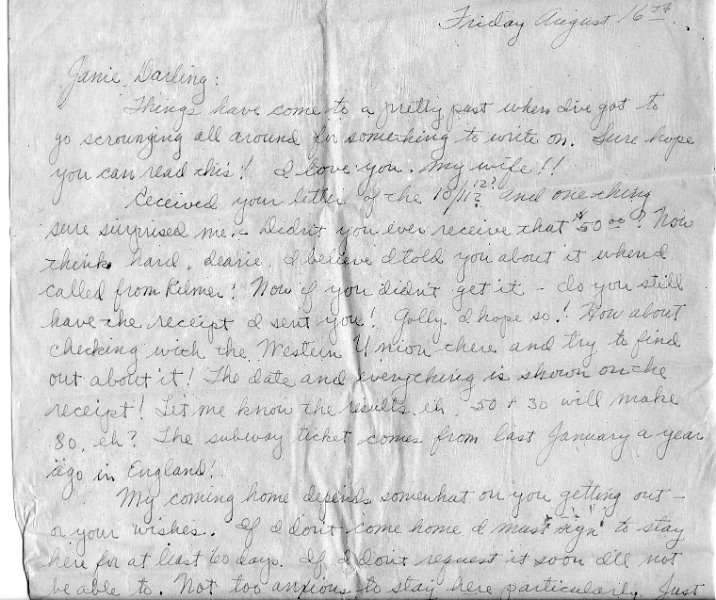 Friday August 16th.
Janie Darling:
Things have come to a pretty past when I've got to
go scrounging all around for something to write on. Sure hope
you can read this! I love you, my wife!!
Received your letter of the 10/11? 12?? and one thing
sure surprised me. - Didn't you ever receive that $50.00? Now
think hard, dearie, I believe I told you about it when I
called from Kilmer! Now if you didn't get it - do you still
have the receipt I sent you! Golly I hope so.! How about
checking with the Western Union there and try to find
out about it! The date and everything is shown on the
receipt! Let me know the results, eh. 50 + 30 will make
80, eh? The subway ticket comes from last January a year
ago in England!
My coming home depends somewhat on you getting out -
or your wishes. If I don't come home I must "sign" to stay
here for at least 60 days. If I don't request it soon I'll not
be able to. Not too anxious to stay here particularly. Just